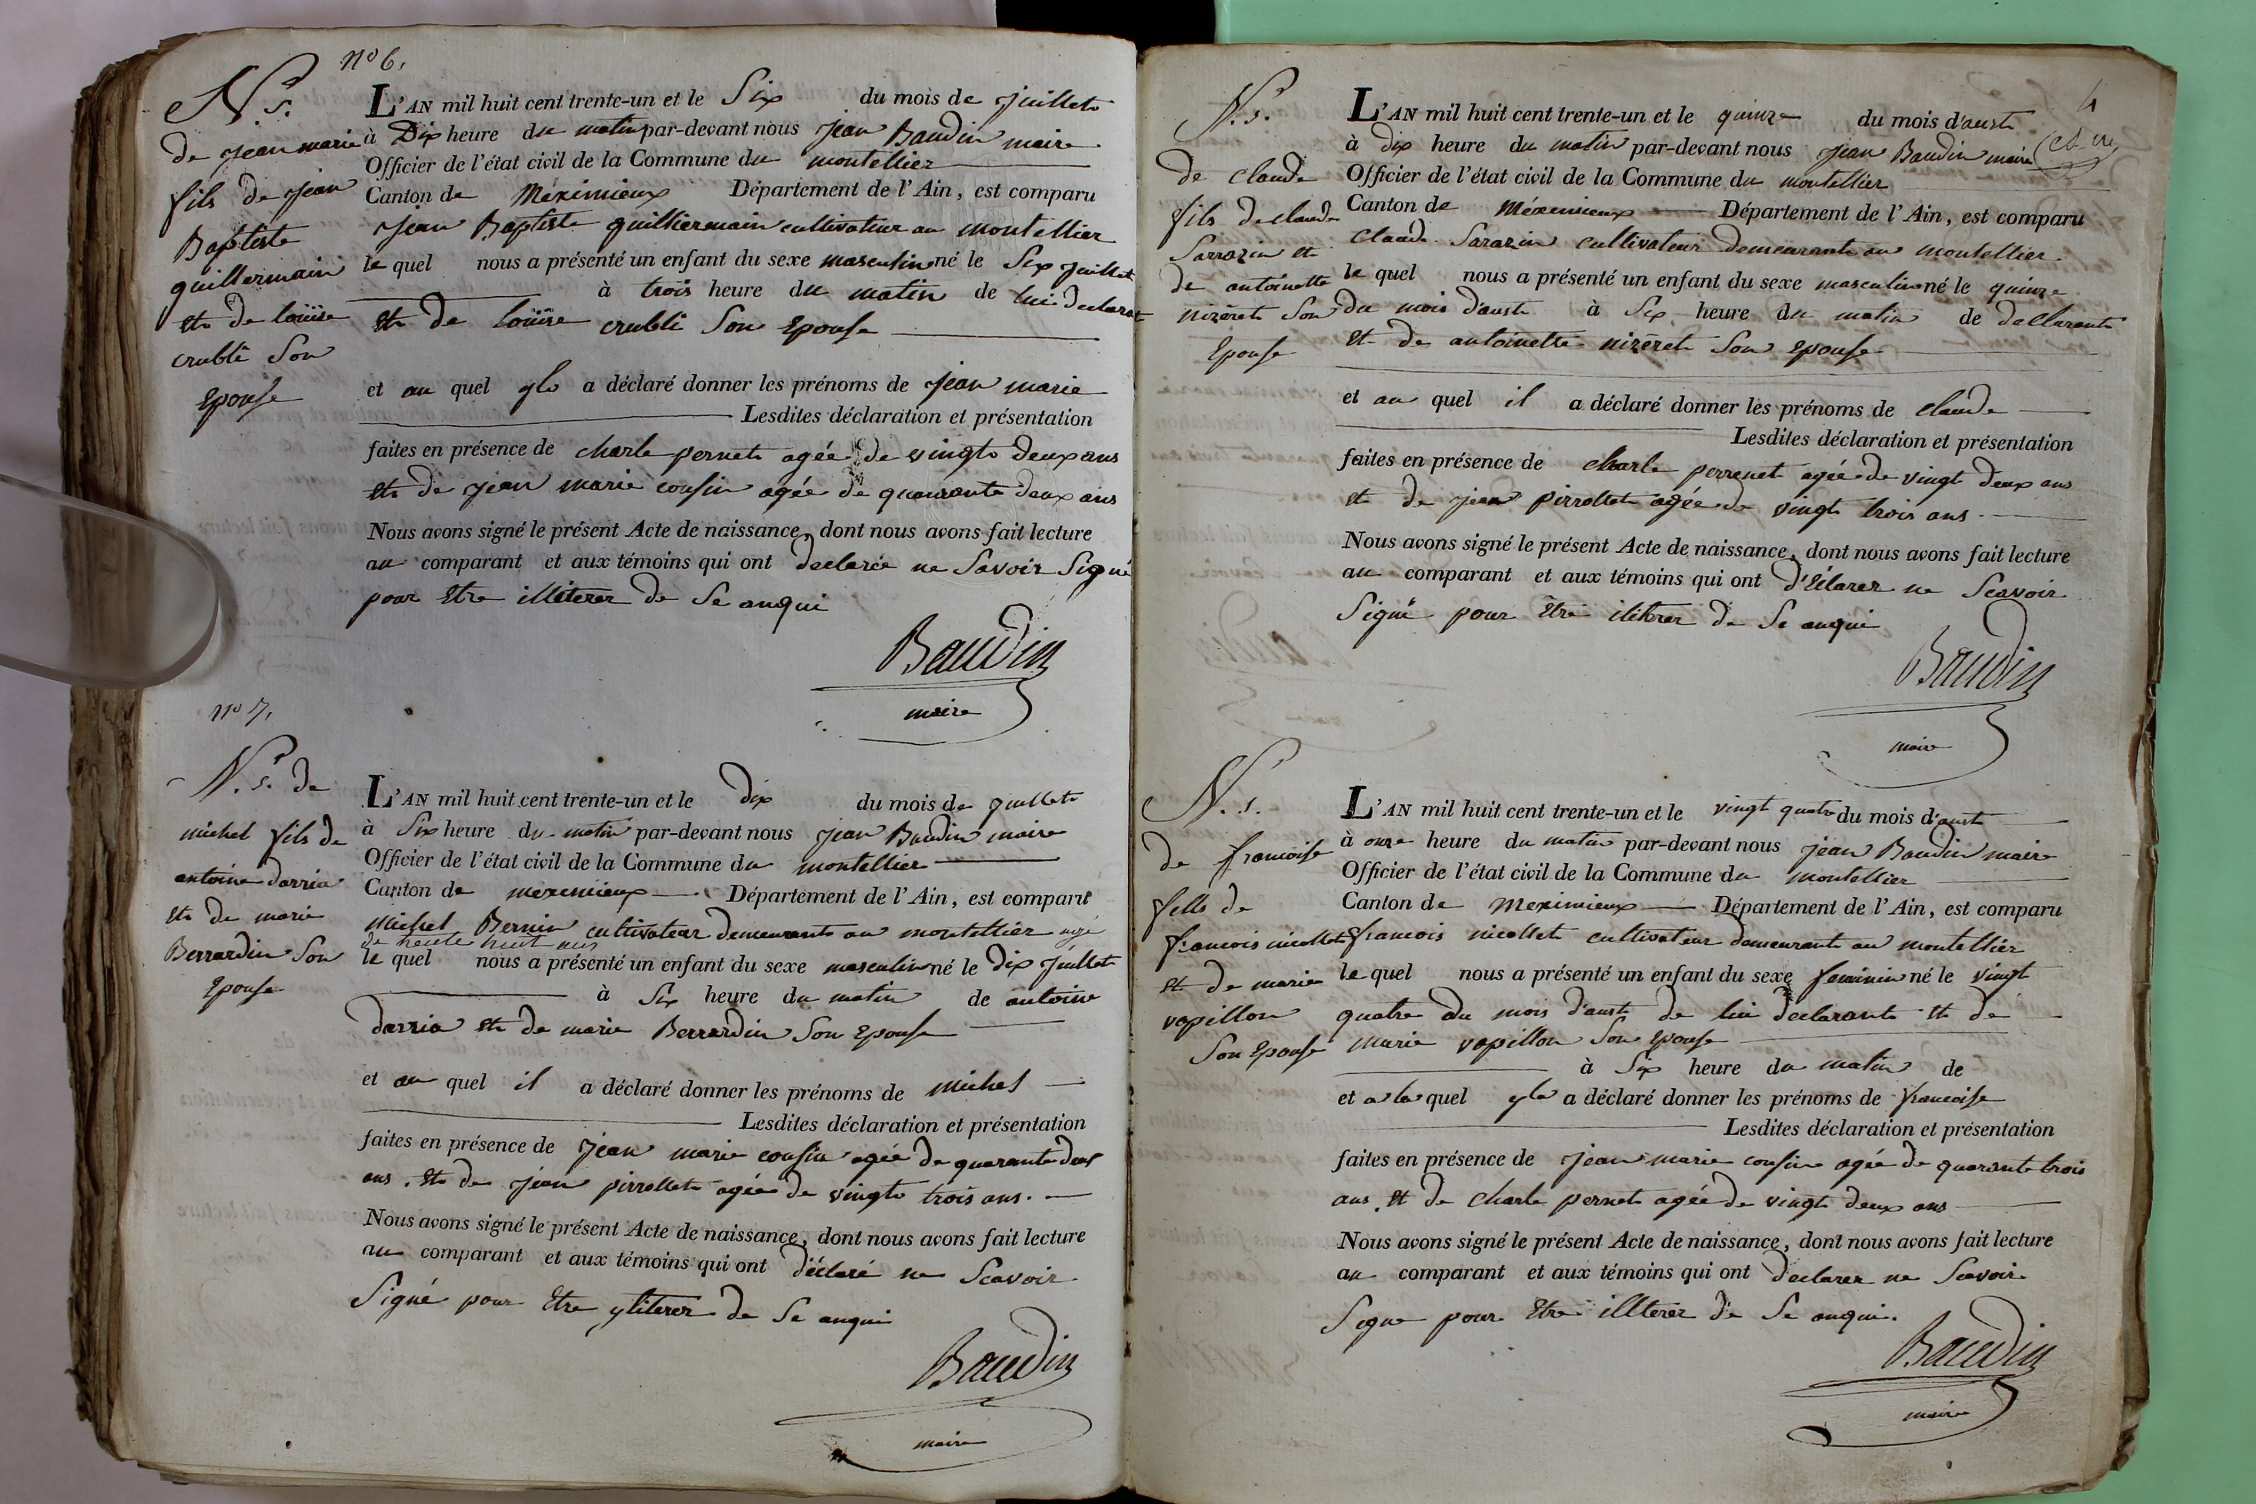 no 6.
N.s.
de jean marie
fils de jean
Baptiste
guillermain
et de louise
crublé Son
Epouse
L'AN mil huit cent trente-un et le Six du mois de juillet
à Dix heure du matin par-devant nous jean Baudin maire
Officier de l'état civil de la Commune du montellier
Canton de Méximieux Département de l'Ain, est comparu
jean Baptiste guilliermain cultivateur au montellier
le quel nous a présenté un enfant du sexe masculin né le Six juillet
à trois heure du matin de lui declarat
et de louïse crublé Son Epouse
et au quel yla a déclaré donner les prénoms de jean marie
Lesdites déclaration et présentation
faites en présence de charle pernet agée de vingt deux ans
et de jean marie cousin agée de quarante deux ans
Nous avons signé le présent Acte de naissance, dont nous avons fait lecture
au comparant et aux témoins qui ont declarée ne Savoir Signé
pour Etre illiterer de Se anqui
Baudin
maire
no 7.
N.s. de
michel fils de
antoine darria
et de marie
Berrardin Son
Epouse
L'AN mil huit cent trente-un et le dix du mois de juillet
à Six heure du matin par-devant nous jean Baudin maire
Officier de l'état civil de la Commune du montellier
Canton de meximieux Département de l'Ain, est comparu
michel Bernin cultivateur demeurant au montellier agé
de trente huit ans
le quel nous a présenté un enfant du sexe masculin né le dix juillet
à Six heure du matin de antoine
darria et de marie Berrardin Son Epouse
et au quel il a déclaré donner les prénoms de michel
Lesdites déclaration et présentation
faites en présence de jean marie cousin agée de quarante deux
ans. et de jean pirrollet agée de vingt trois ans.
Nous avons signé le présent Acte de naissance, dont nous avons fait lecture
au comparant et aux témoins qui ont déclaré ne Scavoir
Signé pour Etre yliterer de Se anqui
Baudin
maire
4
N.s.
de claude
fils de claude
Sarrazin et
de antoinette
nizéret Son
Epouse
L'AN mil huit cent trente-un et le quinze du mois d'aust
à dix heure du matin par-devant nous jean Baudin maire
Officier de l'état civil de la Commune du montellier
Canton de Méximieux Département de l'Ain, est comparu
claude Sarazin cultivateur demeurant au montellier
le quel nous a présenté un enfant du sexe masculin né le quinze
du mois d'aust à Six heure du matin de declarant
et de antoinette nizéret Son epouse
et au quel il a déclaré donner les prénoms de claude
Lesdites déclaration et présentation
faites en présence de charle perrenet agée de vingt deux ans
et de jean pirrollet agée de vingt trois ans.
Nous avons signé le présent Acte de naissance, dont nous avons fait lecture
au comparant et aux témoins qui ont d'Eclarer ne Scavoir
Signé pour Etre iliterer de Se anqui
Baudin
maire
N.s.
de francoise
fille de
francois nicollet
et de marie
vapillon
Son Epouse
L'AN mil huit cent trente-un et le vingt quatre du mois d'aust
à onze heure du matin par-devant nous jean Baudin maire
Officier de l'état civil de la Commune du montellier
Canton de Meximieux Département de l'Ain, est comparu
francois nicollet cultivateur demeurant au montellier
le quel nous a présenté un enfant du sexe feminin né le vingt
quatre du mois d'aust de lui declarant et de
marie vapillon Son Epouse
à Six heure du matin de
et a la quel yla a déclaré donner les prénoms de francoise
Lesdites déclaration et présentation
faites en présence de jean marie cousin agée de quarante trois
ans. et de charle pernet agée de vingt deux ans
Nous avons signé le présent Acte de naissance, dont nous avons fait lecture
au comparant et aux témoins qui ont declarer ne Scavoir
Signe pour Etre illterer de Se anqui.
Baudin
maire